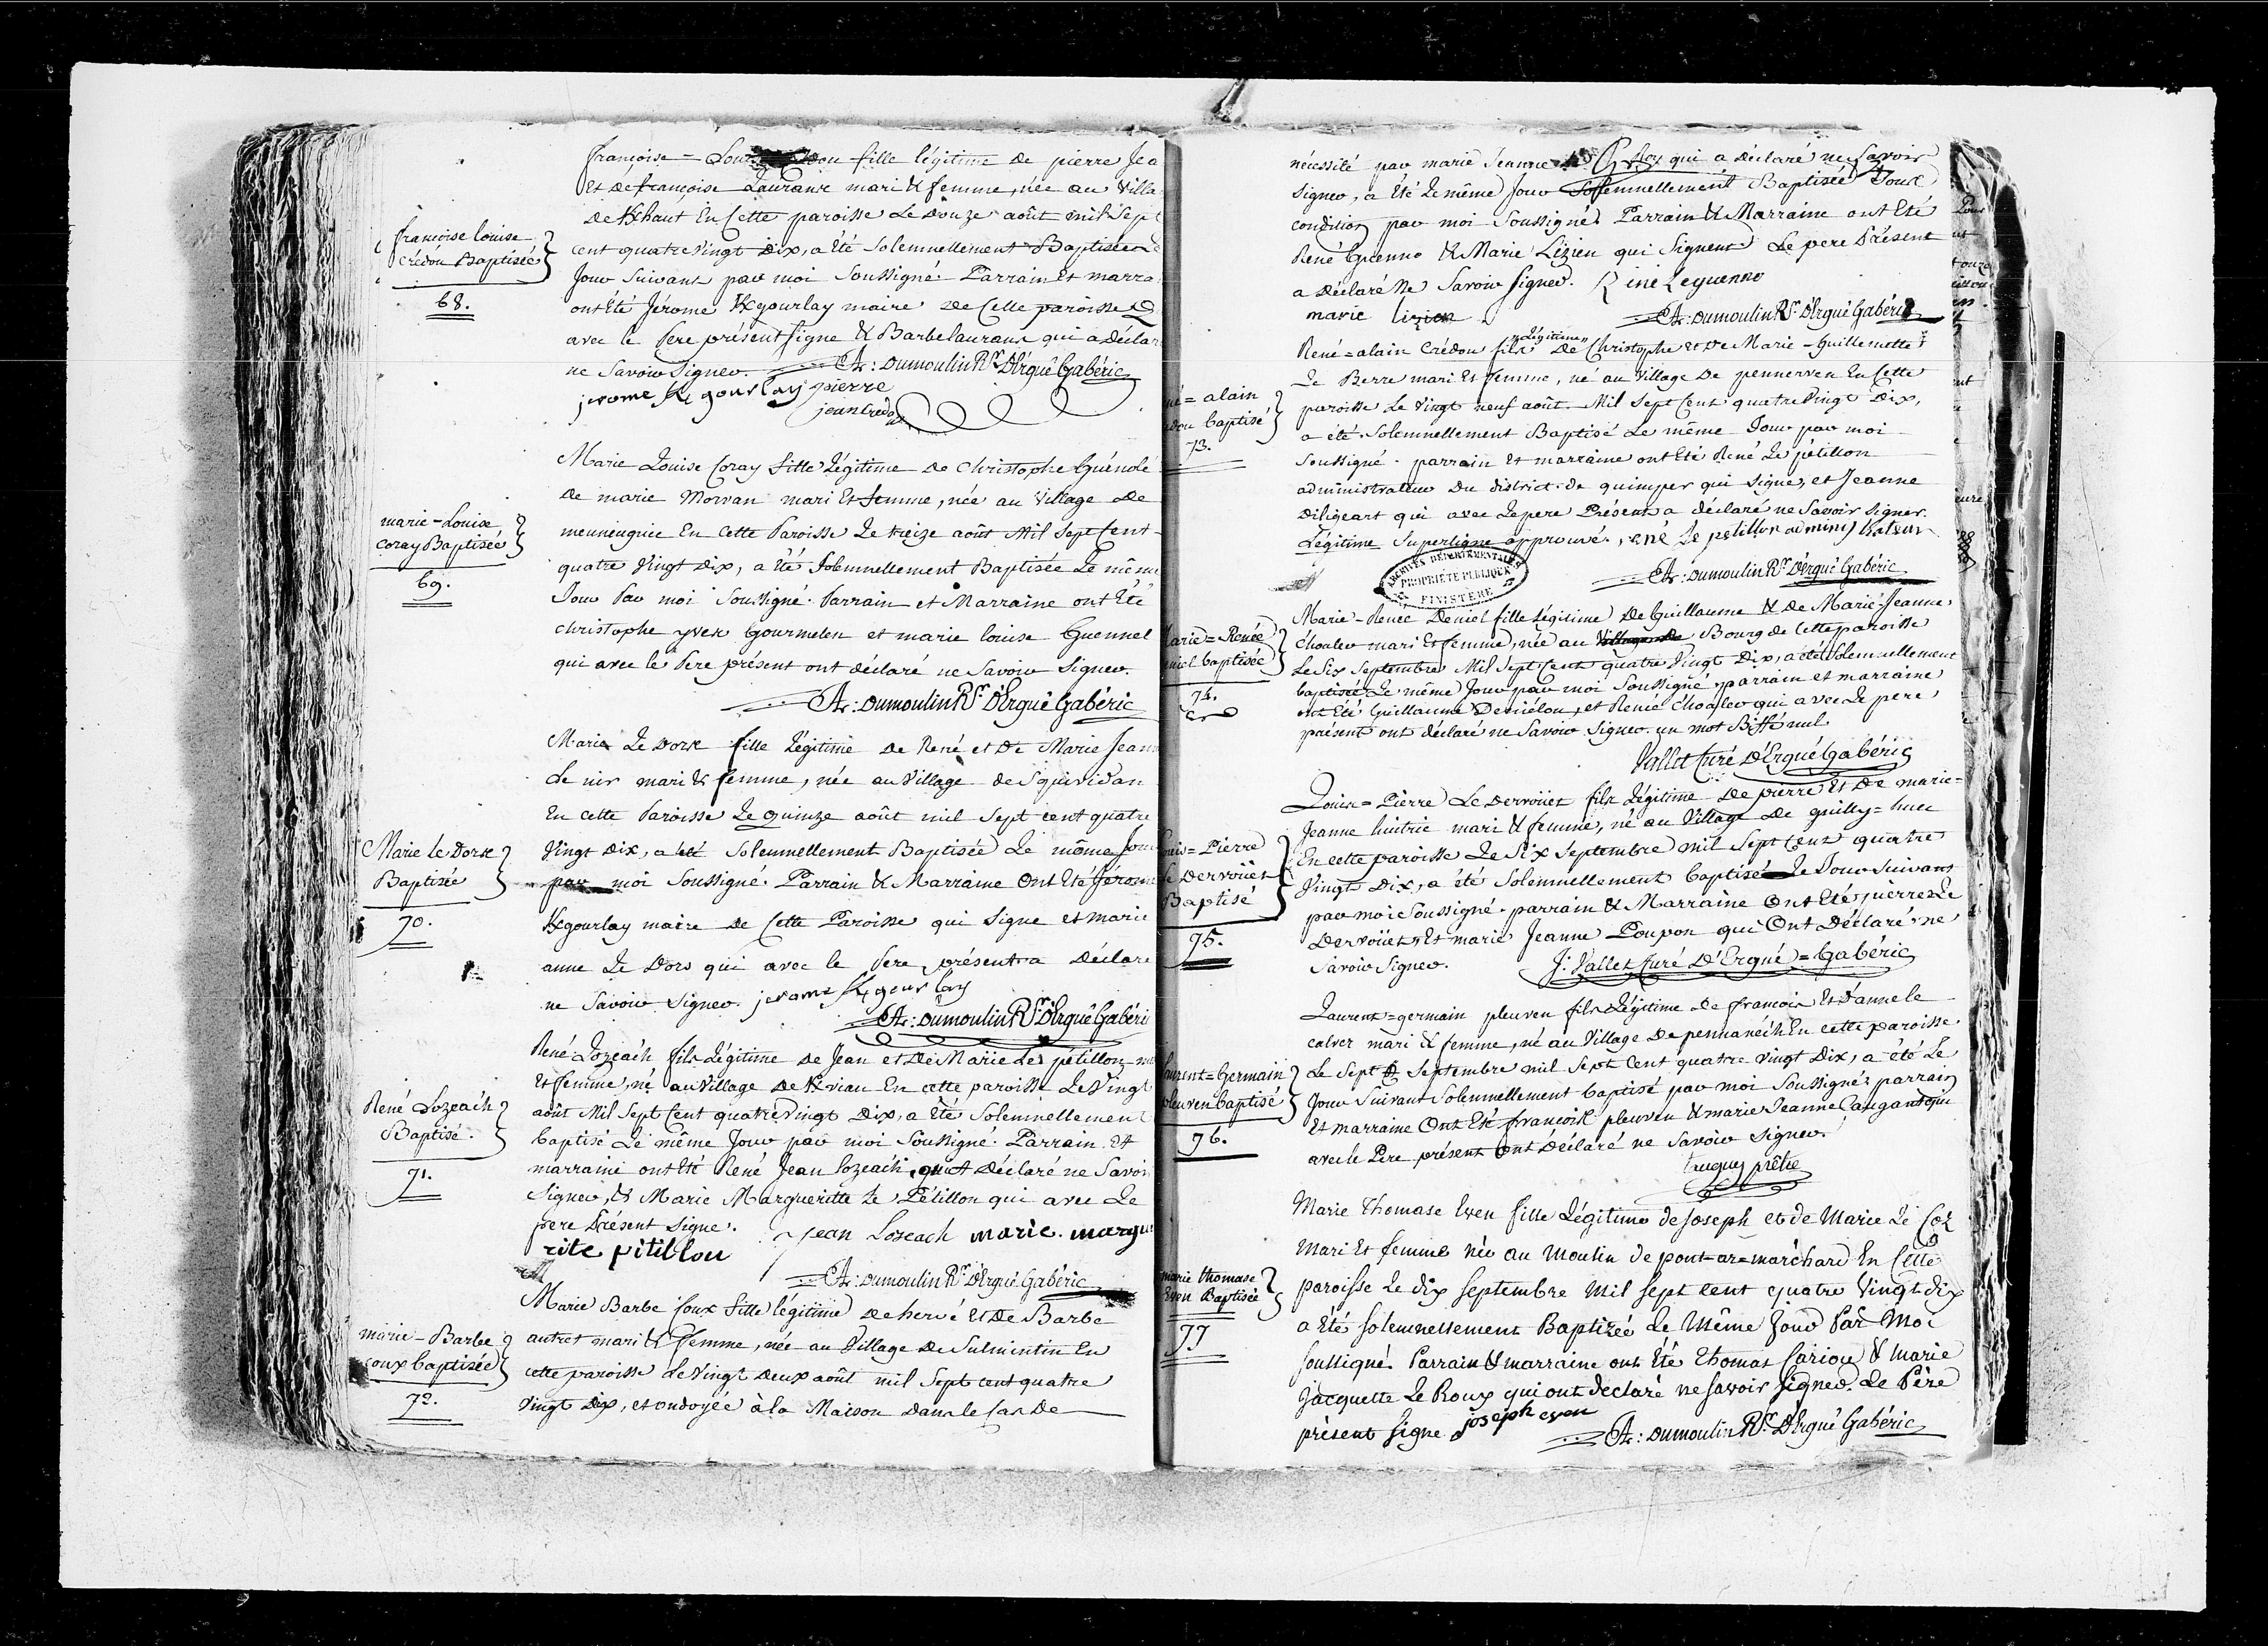 françoise louise
crédou Baptisée
68.
françoise = Lou dou fille légitime de pierre Jea
Et de françoise Lauranx mari & femme, née au Villa
De Kxhaut En Cette paroisse Le Douze août mil Sept
cent quatre Vingt Dix, a Eté Solemnellement Baptisée
Jour Suivant par moi Soussigné. Parrain Et marra
ont Eté Jérome Kxgourlay maire de Cette paroisse Q
avec le Pere présent signe & Barbe Lauranx qui a Déclar
ne Savoir Signer. A: Dumoulin Rr D'Ergué Gabéric
jerome Kgourlay pierre
jean Credou
marie = Louise
coray Baptisée
69.
Marie Louise Coray fille Légitime de Christophe Guénolé
De marie Morvan mari Et femme, née au Village De
menneuguic En Cette Paroisse Le treize août Mil Sept Cent
quatre Vingt Dix, a Eté Solemnellement Baptisée Le même
Jour Par moi Soussigné. Parrain et Marraine ont Eté
christophe yves Gourmelen et marie louise Guennel
qui avec le Pere présent ont déclaré ne Savoir Signer.
A: Dumoulin Rr D'Ergué Gabéric
Marie le Dorx
Baptisée
70.
Marie Le Dorx fille Légitime de René et De Marie Jean
Le nir mari & femme, née au Village de Squividan
En cette Paroisse Le quinze août mil Sept cent quatre
Vingt Dix, a été Solemnellement Baptisée Le même Jour
par moi Soussigné. Parrain & Marraine Ont Eté Jérom
Kxgourlay maire de Cette Paroisse qui Signe et marie
anne Le Dors qui avec le Pere présent a Déclaré
ne Savoir Signer. jerome Kgourlay
A: Dumoulin Rr D'Ergué Gabéri
René Lozeach
Baptisé.
71.
René Lozeach fils Légitime de Jean et De Marie Le pétillon m
Et femme, né au Village De Kxviau En cette paroisse Le Vingt
août Mil Sept Cent quatre Vingt Dix, a Eté Solemnellement
baptisé Le même Jour par moi Soussigné. Parrain Et
marraine ont Eté René Jean lozeach qui A Déclaré ne Savoi
Signer, & Marie Margueritte Le Pétillon qui avec Le
pere Présent Signe. Jean Lozeach marie. margu
rite pitiblou
A: Dumoulin Rr D'Ergué Gabéric
marie = Barbe
coux baptisée
72.
Marie Barbe Coux fille légitime De hervé Et De Barbe
autret mari & femme, née au Village De Sulvintin En
cette paroisse Le Vingt Deux août mil Sept cent quatre
Vingt Dix, et ondoyée à la Maison Dans le Cas De
nécessité par marie Jeanne qui a Déclaré ne Savoir
Signer, a Eté Le même Jour Solemnellement Baptisée Sous
condition par moi Soussigné. Parrain & Marraine ont Eté
René Guenno & Marie Lizien qui Signent Le pere Présent
a Déclaré Ne Savoir Signer. Riné Leguenno
marie lizien A: Dumoulin Rr D'Ergué Gabéric
né = alain
dou baptisé
73.
René = alain Crédou fils "Légitime" De Christophe et De Marie = Guillemette
Le Berre mari Et femme, né au Village De pennerven En Cette
paroisse Le Vingt neuf août Mil Sept Cent quatre Vingt Dix,
a été Solemnellement Baptisé Le même Jour par moi
Soussigné. parrain et marraine ont Eté René Le pétillon
administrateur Du District de quimper qui Signe, et Jeanne
Diligeart qui avec Le pere Présent a déclaré ne Savoir Signer.
Légitime Superligne approuvé. rené le petillon administrateur
ARCHIVES DÉPARTEMENTALES
PROPRIÉTÉ PUBLIQUE
FINISTÈRE
A: Dumoulin Rr D'Ergué Gabéric
Marie = Renée
niel baptisée
74.
Marie = Renée Deniel fille Légitime De Guillaume & De Marie = Jeanne
Choaler mari Et femme, née au Village de Bourg de Cette paroisse
Le Six Septembre Mil Sept Cent quatre Vingt Dix, a été Solemnellement
baptisée Le même Jour par moi Soussigné parrain et marraine
ont Eté Guillaume Deniélou, et Renée Choaler qui avec Le pere
présent ont déclaré ne Savoir Signer. un mot Biffé nul.
Vallet Curé D'Ergué Gabéric
Louis = Pierre
Le Dervöuet
Baptisé
75.
Louis = Pierre Le Dervöuet fils Légitime De pierre Et De marie =
Jeanne huitric mari & femme, né au Village De quilly = huec
En cette paroisse Le Six Septembre mil Sept Cent quatre
Vingt Dix, a été Solemnellement baptisé Le Jour Suivant
par moi Soussigné. parrain & Marraine Ont Eté pierre Le
Dervöuet, Et marie Jeanne Poupon qui Ont Déclaré ne
Savoir Signer. J: Vallet Curé D'Ergué = Gabéric
aurent = Germain
pleuven baptisé
76.
Laurent = germain pleuven fils Légitime De françois Et D'anne le
calvez mari & femme, né au Village De pennanéch En cette paroisse
Le Sept Septembre mil Sept Cent quatre Vingt Dix, a été Le
Jour Suivant Solemnellement baptisé par moi Soussigné parrain
Et marraine Ont Eté françois pleuven & marie Jeanne Caugant qui
avec le Pere présent Ont Déclaré ne Savoir Signer.
tuguy prêtre
marie thomase
Even Baptisée
77
Marie Thomase Even fille Légitime de Joseph et de Marie Le Coz
Mari Et femme Née au Moulin de pont = ar = marchard En Cette
paroisse Le dix Septembre Mil Sept Cent quatre Vingt dix
a Eté Solemnellement Baptizée Le Même Jour Par Moi
Soussigné. Parrain & marraine ont Eté Thomas Cariou & Marie
Jacquette Le Roux qui ont declaré ne Savoir Signer. Le Père
présent Signe joseph even
A: Dumoulin Rr D'Ergué Gabéric